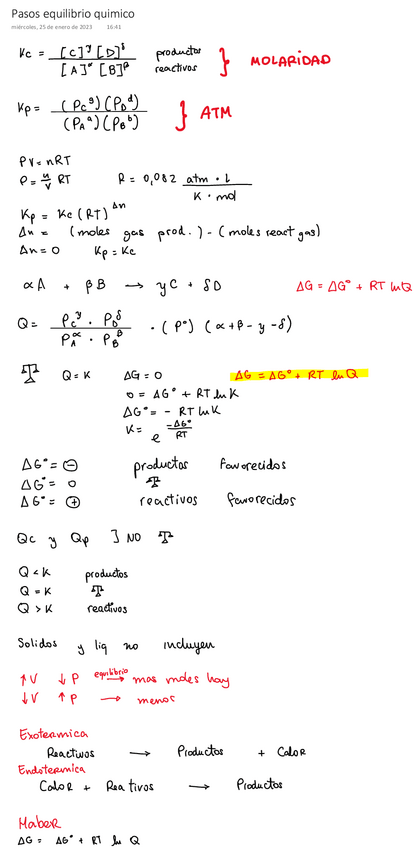 Pasos equilibrio quimico
miércoles, 25 de enero de 2023 16:41
Kc = [C]^γ [D]^δ / [A]^α [B]^β productos reactivos } MOLARIDAD
Kp = (Pc^g)(PD^d) / (PA^a)(PB^b) } ATM
PV = nRT
P = n/V RT R = 0,082 atm · L / K · mol
Kp = Kc (RT)^Δn
Δn = (moles gas prod.) - (moles react gas)
Δn = 0 Kp = Kc
αA + βB → γC + δD ΔG = ΔG° + RT ln Q
Q = Pc^γ · PD^δ / PA^α · PB^β · (P°) (α+β-γ-δ)
Q = K ΔG = 0 ΔG = ΔG° + RT ln Q
0 = ΔG° + RT ln K
ΔG° = - RT ln K
K = e^(-ΔG°/RT)
ΔG° = ⊖ productos favorecidos
ΔG° = 0
ΔG° = ⊕ reactivos favorecidos
Qc y Qp ] NO
Q < K productos
Q = K
Q > K reactivos
Solidos y liq no incluyen
↑V ↓P equilibrio → mas moles hay
↓V ↑P → menos
Exotermica
Reactivos → Productos + Calor
Endotermica
Calor + Reativos → Productos
Maber
ΔG = ΔG° + RT ln Q